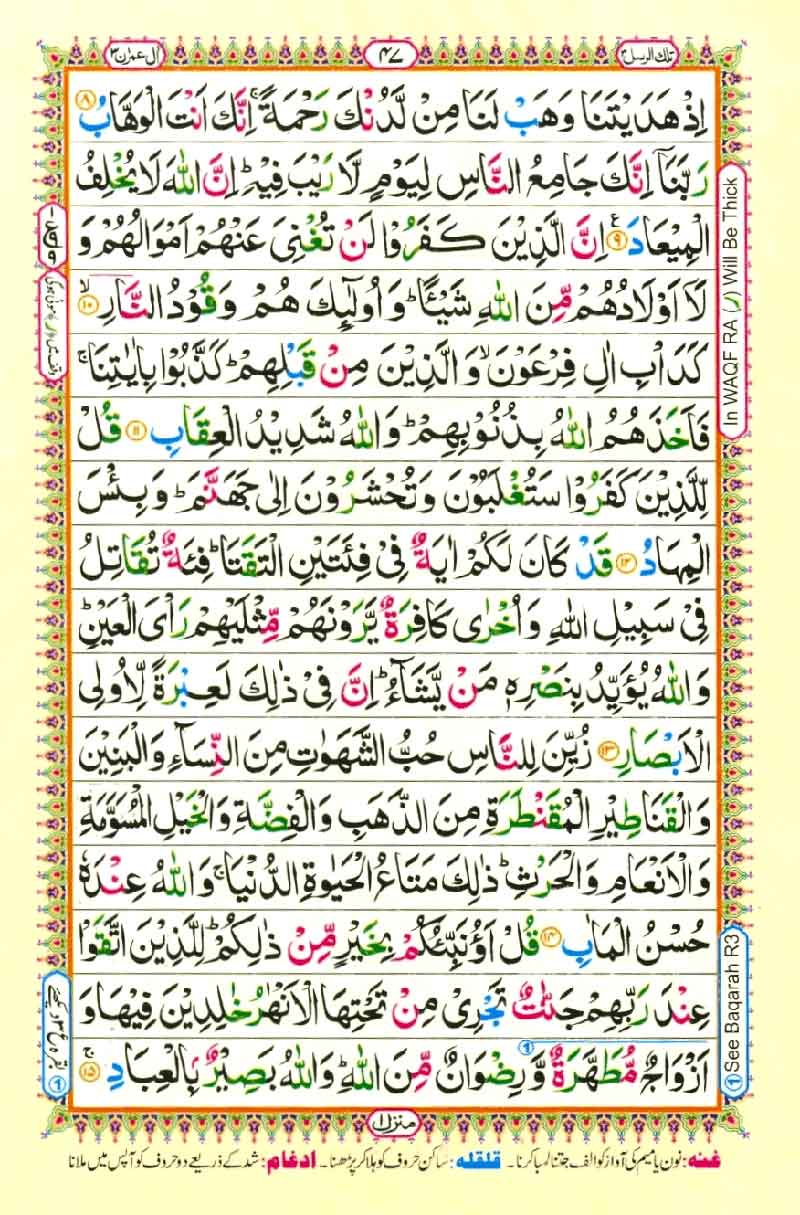 تلك الرسل ٣
٤٧
ال عمرٰن ٣
اِذْ هَدَيْتَنَا وَهَبْ لَنَا مِنْ لَّدُنْكَ رَحْمَةً ۚ اِنَّكَ اَنْتَ الْوَهَّابُ ۝٨
رَبَّنَاۤ اِنَّكَ جَامِعُ النَّاسِ لِيَوْمٍ لَّا رَيْبَ فِيْهِ ؕ اِنَّ اللّٰهَ لَا يُخْلِفُ
الْمِيْعَادَ ۝٩ اِنَّ الَّذِيْنَ كَفَرُوْا لَنْ تُغْنِيَ عَنْهُمْ اَمْوَالُهُمْ وَ
لَاۤ اَوْلَادُهُمْ مِّنَ اللّٰهِ شَيْـًٔا ؕ وَ اُولٰٓئِكَ هُمْ وَقُوْدُ النَّارِ ۝١٠ۙ
كَدَاْبِ اٰلِ فِرْعَوْنَ ۙ وَ الَّذِيْنَ مِنْ قَبْلِهِمْ ؕ كَذَّبُوْا بِاٰيٰتِنَا ۚ
فَاَخَذَهُمُ اللّٰهُ بِذُنُوْبِهِمْ ؕ وَ اللّٰهُ شَدِيْدُ الْعِقَابِ ۝١١ قُلْ
لِّلَّذِيْنَ كَفَرُوْا سَتُغْلَبُوْنَ وَ تُحْشَرُوْنَ اِلٰى جَهَنَّمَ ؕ وَ بِئْسَ
الْمِهَادُ ۝١٢ قَدْ كَانَ لَكُمْ اٰيَةٌ فِيْ فِئَتَيْنِ الْتَقَتَا ؕ فِئَةٌ تُقَاتِلُ
فِيْ سَبِيْلِ اللّٰهِ وَ اُخْرٰى كَافِرَةٌ يَّرَوْنَهُمْ مِّثْلَيْهِمْ رَاْيَ الْعَيْنِ ؕ
وَ اللّٰهُ يُؤَيِّدُ بِنَصْرِهٖ مَنْ يَّشَآءُ ؕ اِنَّ فِيْ ذٰلِكَ لَعِبْرَةً لِّاُولِي
الْاَبْصَارِ ۝١٣ زُيِّنَ لِلنَّاسِ حُبُّ الشَّهَوٰتِ مِنَ النِّسَآءِ وَ الْبَنِيْنَ
وَ الْقَنَاطِيْرِ الْمُقَنْطَرَةِ مِنَ الذَّهَبِ وَ الْفِضَّةِ وَ الْخَيْلِ الْمُسَوَّمَةِ
وَ الْاَنْعَامِ وَ الْحَرْثِ ؕ ذٰلِكَ مَتَاعُ الْحَيٰوةِ الدُّنْيَا ۚ وَ اللّٰهُ عِنْدَهٗ
حُسْنُ الْمَاٰبِ ۝١٤ قُلْ اَؤُنَبِّئُكُمْ بِخَيْرٍ مِّنْ ذٰلِكُمْ ؕ لِلَّذِيْنَ اتَّقَوْا
عِنْدَ رَبِّهِمْ جَنّٰتٌ تَجْرِيْ مِنْ تَحْتِهَا الْاَنْهٰرُ خٰلِدِيْنَ فِيْهَا وَ
اَزْوَاجٌ مُّطَهَّرَةٌ وَّ رِضْوَانٌ مِّنَ اللّٰهِ ؕ وَ اللّٰهُ بَصِيْرٌۢ بِالْعِبَادِ ۝١٥ۚ
In WAQF RA (ر) Will Be Thick
① See Baqarah R3
منزل ١
غنه: نون یا میم کی آواز کو الف جتنا لمبا کرنا۔ قلقله: ساکن حروف کو ہلا کر پڑھنا۔ ادغام: شد کے ذریعے دو حروف کو آپس میں ملانا